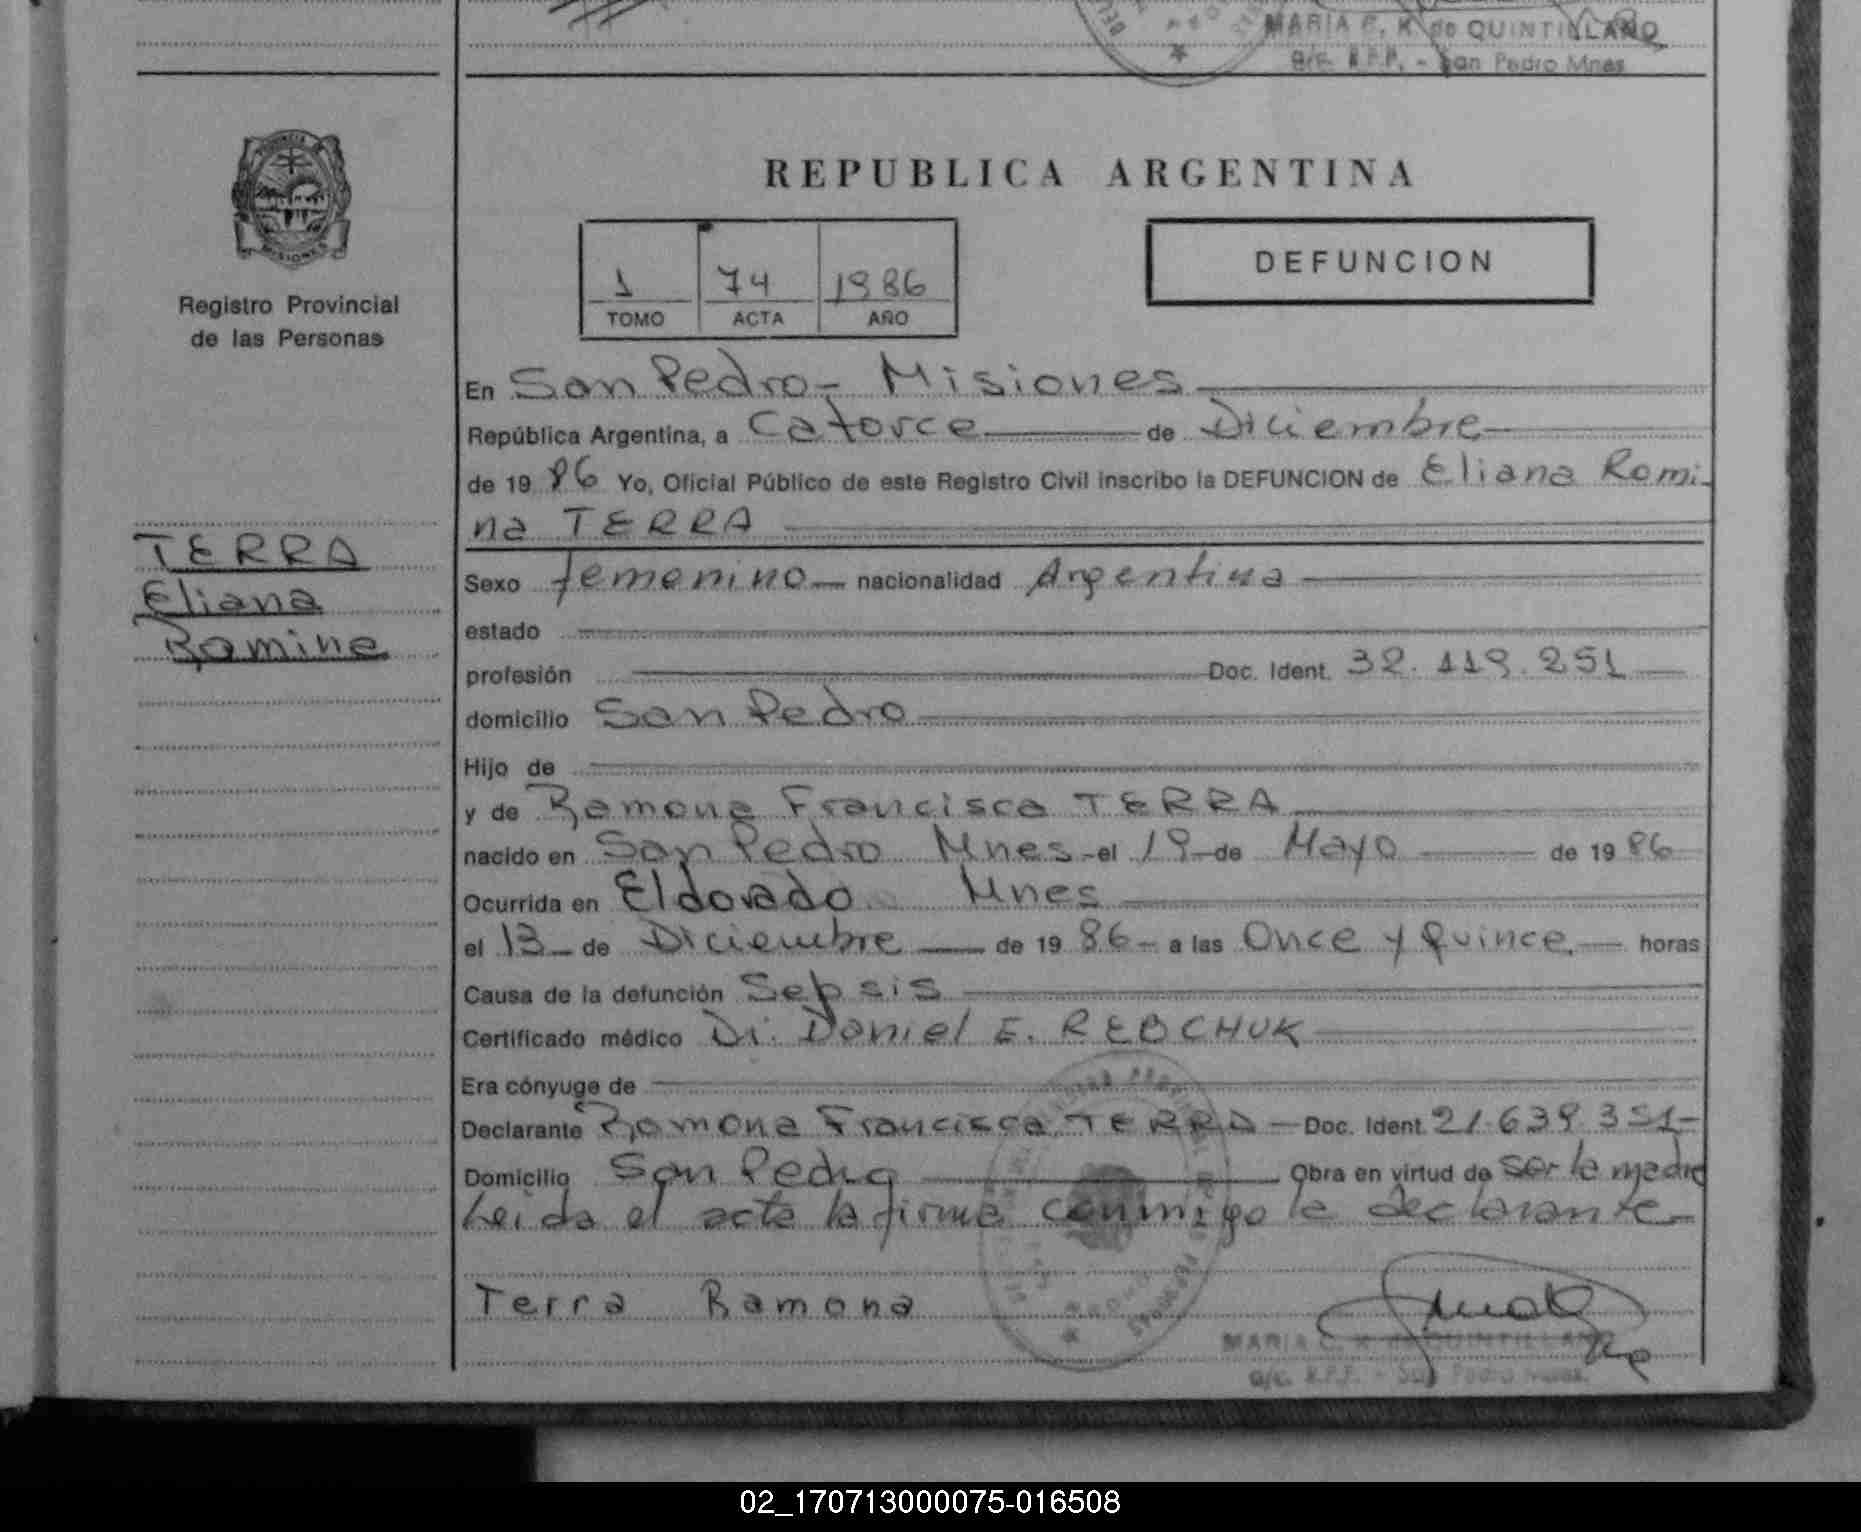 MARIA C. K. de QUINTILLANO
a/c. R.P.P. - San Pedro Mnes
PROVINCIA
MISIONES
Registro Provincial
de las Personas
REPUBLICA ARGENTINA
1 74 1986
TOMO ACTA AÑO
DEFUNCION
En San Pedro- Misiones
República Argentina, a Catorce de Diciembre
de 19 86 Yo, Oficial Público de este Registro Civil inscribo la DEFUNCION de Eliana Romi-
na TERRA
TERRA
Eliana
Romina
Sexo femenino nacionalidad Argentina
estado
profesión Doc. Ident. 32.119.251
domicilio San Pedro
Hijo de
y de Ramona Francisca TERRA
nacido en San Pedro Mnes - el 19 - de Mayo de 19 86
Ocurrida en Eldorado Mnes
el 13 - de Diciembre de 19 86 - a las Once y Quince horas
Causa de la defunción Sepsis
Certificado médico Dr. Daniel E. REBCHUK
Era cónyuge de
Declarante Ramona Francisca TERRA - Doc. Ident. 21.639.351-
Domicilio San Pedro Obra en virtud de ser la madre
Leida el acta la firma conmigo la declarante-
Terra Ramona
MARIA C. K. de QUINTILLANO
a/c. R.P.P. - San Pedro Mnes.
02_170713000075-016508